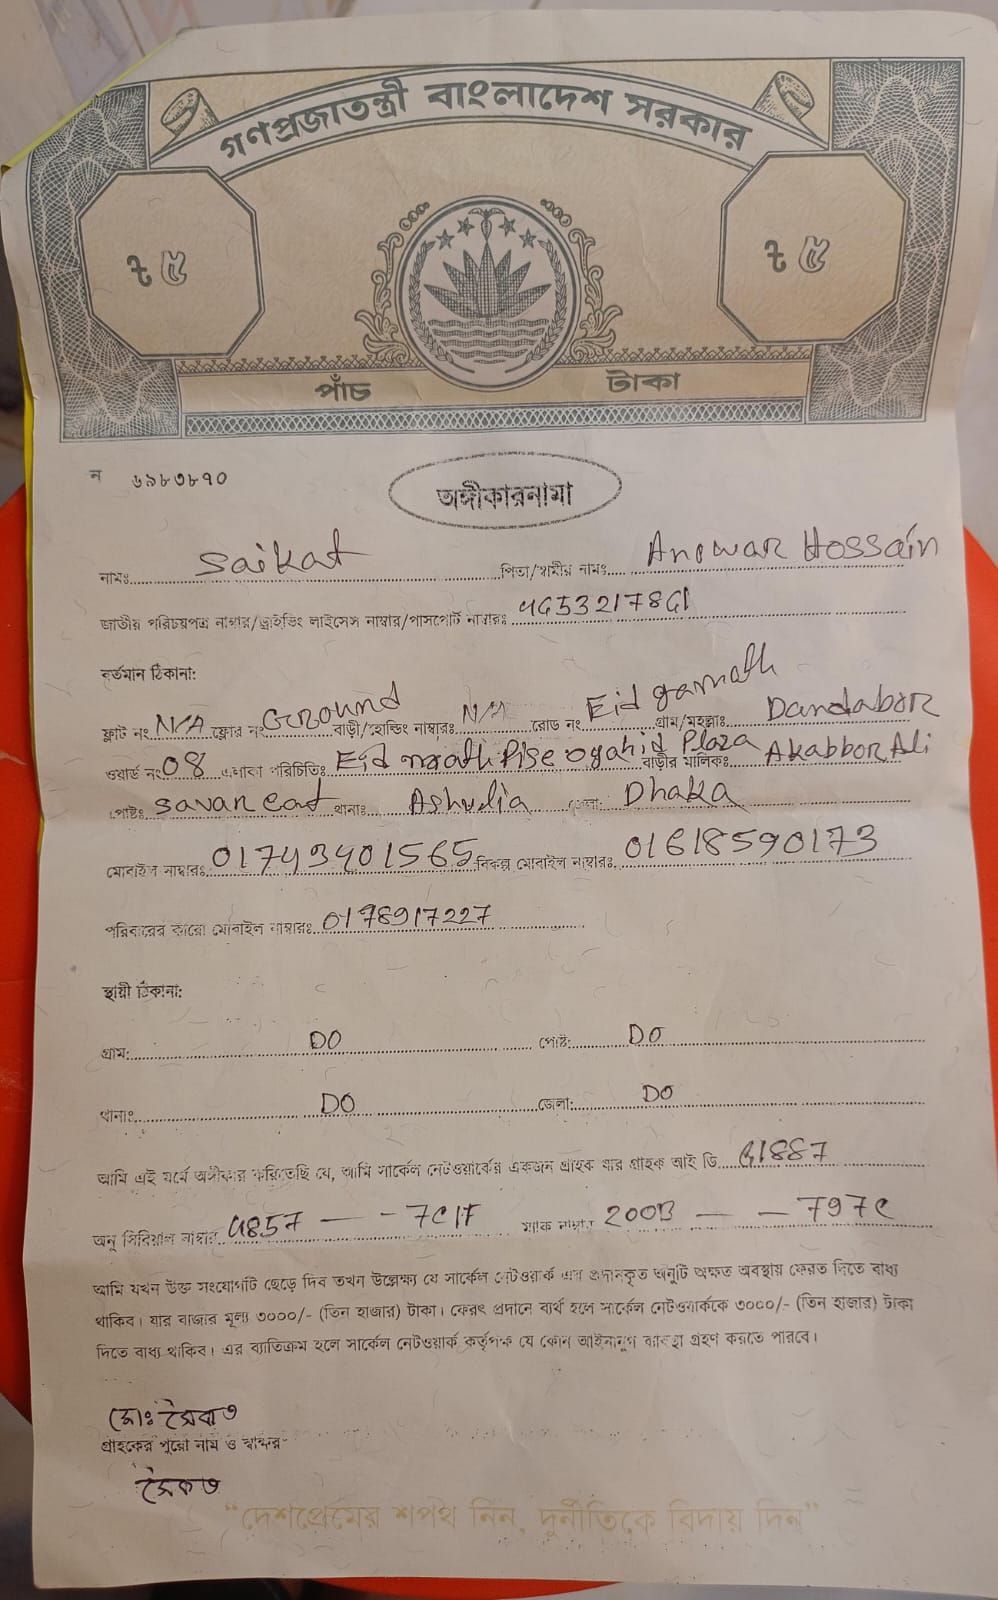 গণপ্রজাতন্ত্রী বাংলাদেশ সরকার
৳ ৫ ৳ ৫
পাঁচ টাকা
ন ৬৯৮৩৮৭০
অঙ্গীকারনামা
নামঃ Saikat পিতা/স্বামীর নামঃ Anowar Hossain
জাতীয় পরিচয়পত্র নাম্বার/ড্রাইভিং লাইসেন্স নাম্বার/পাসপোর্ট নাম্বারঃ
বর্তমান ঠিকানা:
ফ্লাট নং N/A ফ্লোর নং Ground বাড়ী/হোল্ডিং নাম্বারঃ N/A রোড নং Eid গ্রাম/মহল্লাঃ Dandabor
ওয়ার্ড নং 08 এলাকা পরিচিতিঃ Eid Plaza বাড়ীর মালিকঃ Akabbor Ali
পোষ্টঃ savar থানাঃ Ashulia জেলা: Dhaka
মোবাইল নাম্বারঃ 01743401565 বিকল্প মোবাইল নাম্বারঃ 01618590173
পরিবারের কারো মোবাইল নাম্বারঃ 0178917227
স্থায়ী ঠিকানা:
গ্রাম: DO পোষ্ট: DO
থানাঃ DO জেলা: DO
আমি এই মর্মে অঙ্গীকার করিতেছি যে, আমি সার্কেল নেটওয়ার্কের একজন গ্রাহক যার গ্রাহক আই ডি
অনু সিরিয়াল নাম্বার ম্যাক নাম্বার 200B — — 797C
আমি যখন উক্ত সংযোগটি ছেড়ে দিব তখন উল্লেক্ষ্য যে সার্কেল নেটওয়ার্ক এর প্রদানকৃত অনুটি অক্ষত অবস্থায় ফেরত দিতে বাধ্য
থাকিব। যার বাজার মূল্য ৩০০০/- (তিন হাজার) টাকা। ফেরৎ প্রদানে ব্যর্থ হলে সার্কেল নেটওয়ার্ককে ৩০০০/- (তিন হাজার) টাকা
দিতে বাধ্য থাকিব। এর ব্যাতিক্রম হলে সার্কেল নেটওয়ার্ক কর্তৃপক্ষ যে কোন আইনানুগ ব্যবস্থা গ্রহণ করতে পারবে।
মোঃ সৈকত
গ্রাহকের পুরো নাম ও স্বাক্ষর
সৈকত
"দেশপ্রেমের শপথ নিন, দুর্নীতিকে বিদায় দিন"